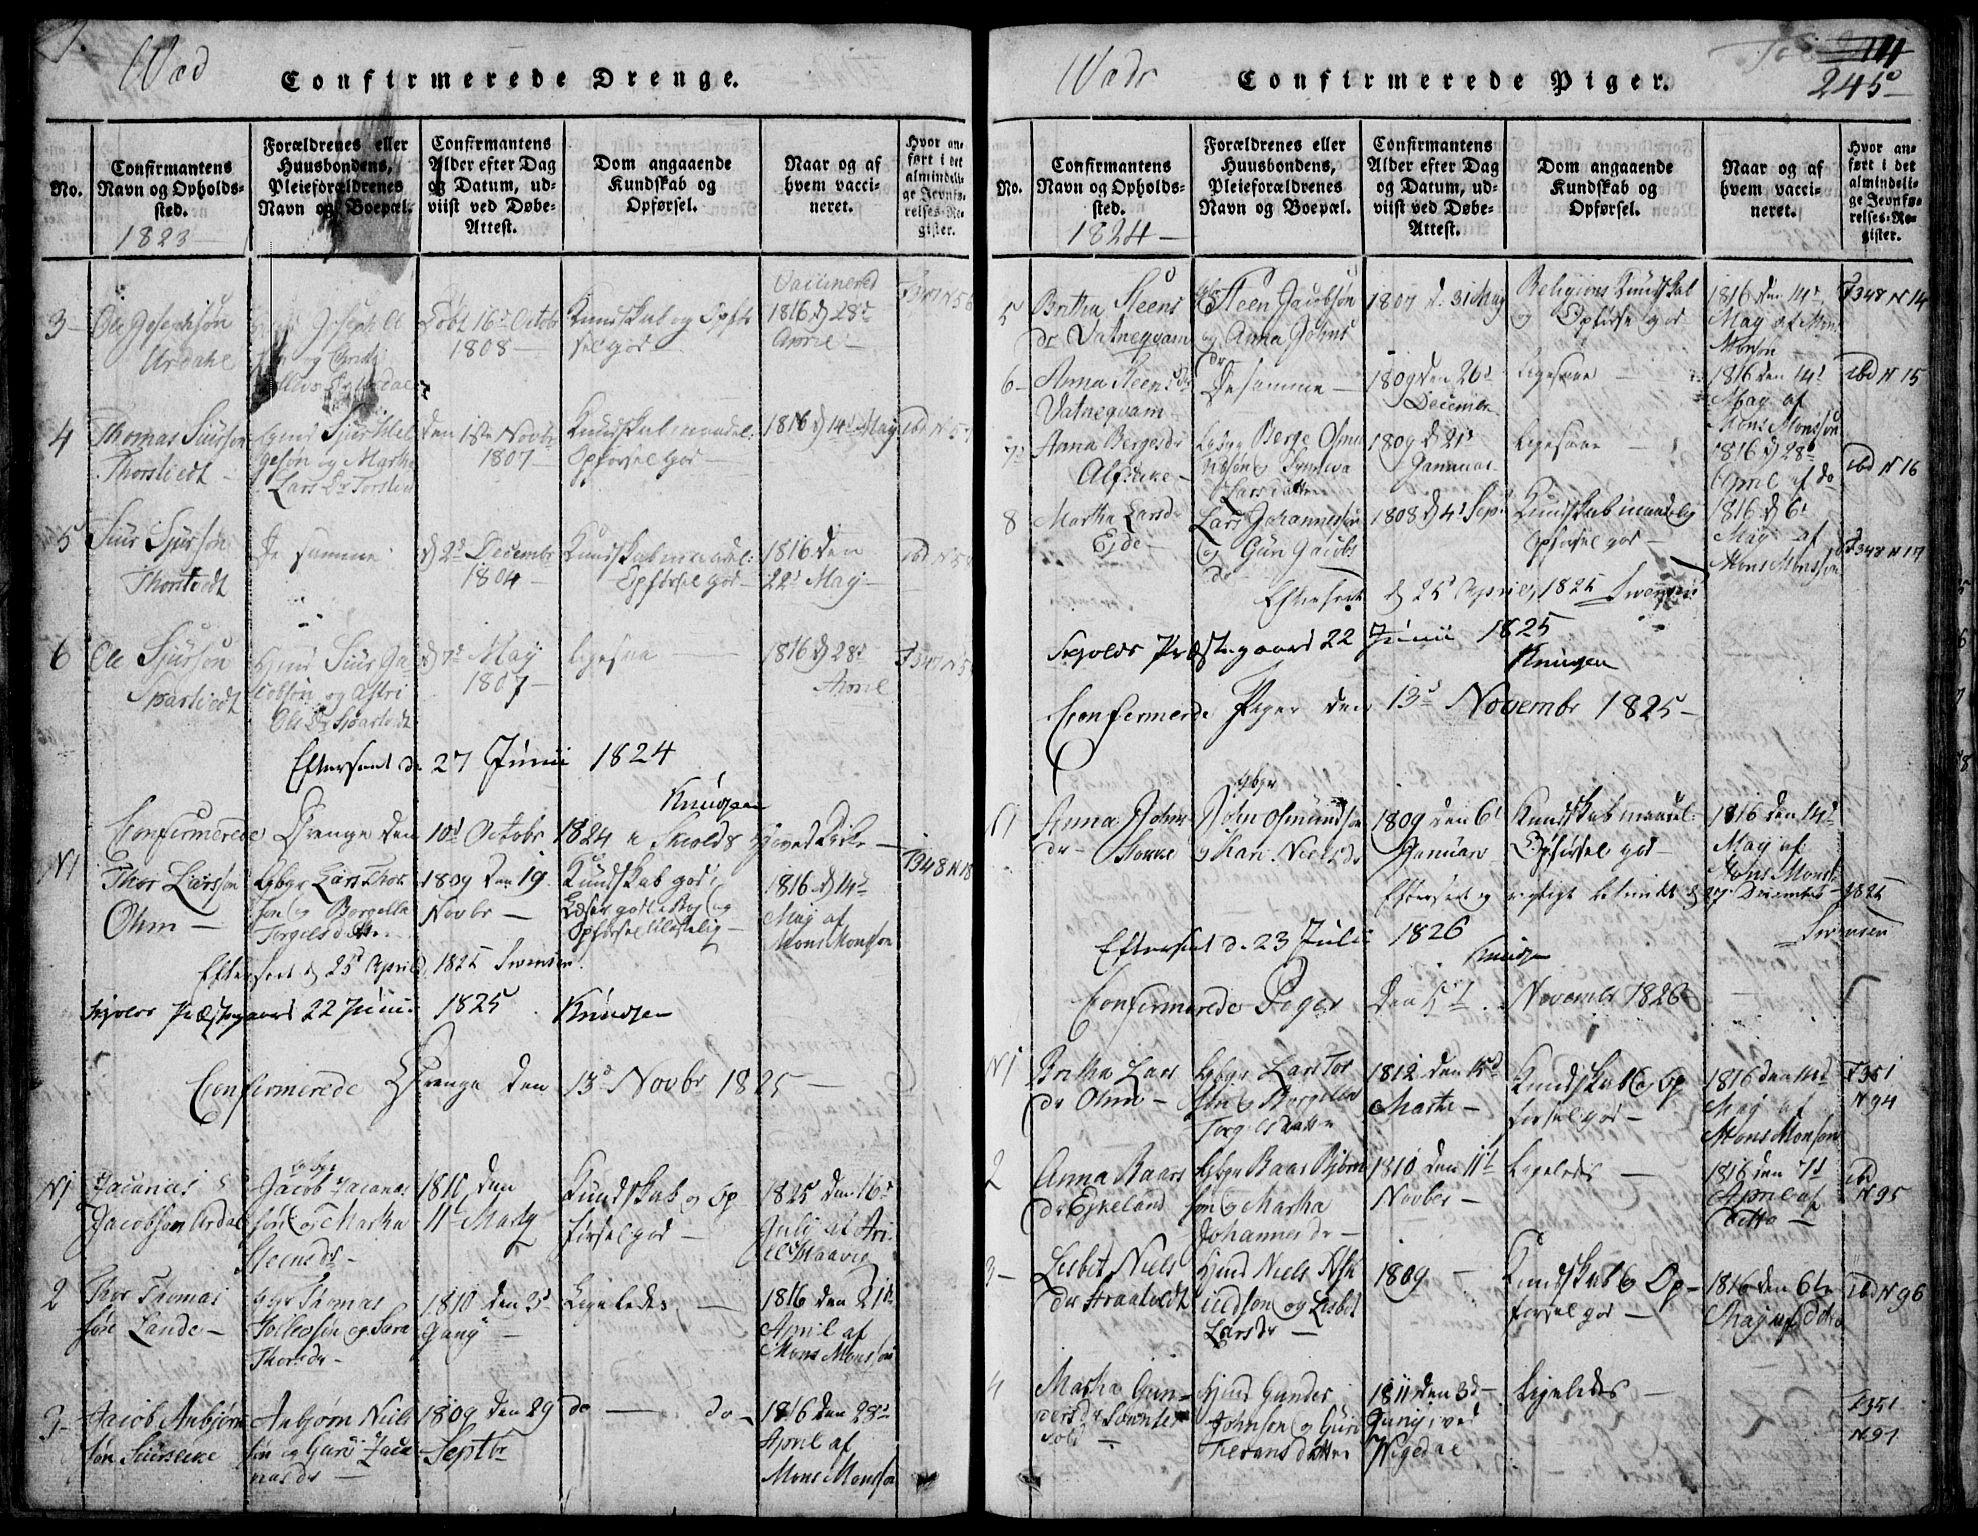 Wad
Confirmerede Drenge.
No.
Confirmantens
Navn og Opholds-
sted.
1823
Forældrenes eller
Huusbondens,
Pleieforældrenes
Navn og Boepæl.
Confirmantens
Alder efter Dag
og Datum, ud-
viist ved Døbe-
Attest.
Dom angaaende
Kundskab og
Opførsel.
Naar og af
hvem vacci-
neret.
Hvor an-
ført i det
almindeli-
ge Jevnfø-
relses-Re-
gister.
3
Ole Josephsøn
Urdahl
Joseph
og
Døbt 16d Octobr
1808
Kundskab og Opfør
sel god
Vaccinered
1816 d 28d
April
4
Thomas Siursøn
Thorstvedt
Gmd Sjur Hel
gesøn og Martha
Lars Dr Torstv
den 18de Novbr
1807
Kundskab maadel:
Opførsel god
1816 d 14d May
ibd N 57
5
Siur Sjursøn
Thorstvedt
De samme
d 2d Decembr
1804
Kundskab maadel:
Opførsel god
1816 den
22d May
6
Ole Sjursøn
Svartvedt
Gmd Siur Ja
cobsøn og Astri
Ole Dr Svartvedt
d 7d May
1807
ligesaa
1816 d 28d
April
Efterseet d. 27 Junii 1824
Knudsen
Confirmerede Drenge den 10d Octobr 1824 i Skiolds Hoved Kirke
N1
Thor Larsson
Ohm
Gbgr Lars Thor
søn og Borgella
Torgelsdatter
1809 den 19
Novbr
Kundskab god,
Læser godt i Bog og
Opførsel
1816 d 14d
May af
Mons Monsson
F348 N 18
Efterseet d 25d April 1825 Svensen
Skjolds Præstegaard 22 Junii 1825 Knudsen
Confirmerede Drenge den 13d Novbr 1825
N1
Zacarias
Jacobson Ardal
Jacob Zacarias
søn og Martha
Steensdr
1810 den
11 Marty
Kundskab og Op
førsel god
1825 den 16d
July af
2
Thor Thomas
søn Lande
Gbgr Thomas
Tollevsen og Sara
Thorsdr
1810 den 3d
Juny
Ligeledes
1816 den 21de
April af
Mons Monsson
3
Jacob Anbjørn
søn Siurseike
Anbjørn Niels
søn og Guru Zaca
riasdr
1809 den 29
Septbr
do
do
1816 den 28d
April af
Mons Monsson
Wads
Confirmerede Piger.
245
No.
Confirmantens
Navn og Opholds-
sted.
1824
Forældrenes eller
Huusbondens,
Pleieforældrenes
Navn og Boepæl.
Confirmantens
Alder efter Dag
og Datum, ud-
viist ved Døbe-
Attest.
Dom angaaende
Kundskab og
Opførsel.
Naar og af
hvem vacci-
neret.
Hvor an-
ført i det
almindeli-
ge Jevnfø-
relses-Re-
gister.
5
Britha Steens
dr Vatneqvam
Steen Jacobsøn
og Anna Johns
dr
1807 d. 31 May
Religions Kundskab
og Opførsel god
1816 den 14d
May af Mons
Monsøn
F348 N 14
6
Anna Steensdr
Vatneqvam
De samme
1809 den 26d
December
Ligesaa
1816 den 14d
May af
Mons Monsson
ibd N 15
7
Anna Bergesdr
Alfseike
Gbgr Berge Osmu
ndsøn og Synneva
Larsdatter
1809 d 21d
Januar
Ligesaa
1816 d 28d
April af do
ibd N 16
8
Martha Larsdr
Eyde
Lars Johannesson
og Guri Jacobs
dr
1808 d 4d Sept
Kundskab maadelig
Opførsel god
1816 d 6d
May af
Mons Monsson
F348 N 17
Efterseet d 25d April 1825 Svensen
Skjolds Præstegaard 22 Junii 1825
Knudsen
Confirmerede Piger den 13d Novembr 1825
N1
Anna John
dr Stokke
Gbgr
John Osmundsøn
og Kari Nielsdr
1809 den 6d
Januar
Kundskab maadel:
Opførsel god
1816 den 14d
May af
Mons Monsøn
Efterseet og rigtigt befundet d 27 December 1825
Svensen
Efterseet d. 23 Julii 1826
Knudsen
Confirmerede Piger den 5te November 1826
N1
Britha Lars
dr Ohm
Gbgr Lars Tor
søn og Borgella
Torgelsdatter
1812 den 15d
Martz
Kundskab og Op
førsel god
1816 den 14d
May af
Mons Monson
F351
N 94
2
Anna Baars
dr Eikeland
Gbgr Baar Bjørn
søn og Martha
Johannesdr
1810 den 11d
Novber
Ligeledes
1816 den 7d
April af
ditto
ibd
N 95
3
Lisbet Niels
dr Straatvedt
Hmd Niels Ask
ildsøn og Lisbet
Larsdr
1809
Kundskab og Op-
førsel god
1816 den 6te
May af ditto
ibd N 96
4
Martha Gun-
dersdr
Hmd Gunder
Johnson og Guri
1811 den 3d
Juny, ved
Vigedal
Ligeledes
F351
N 97